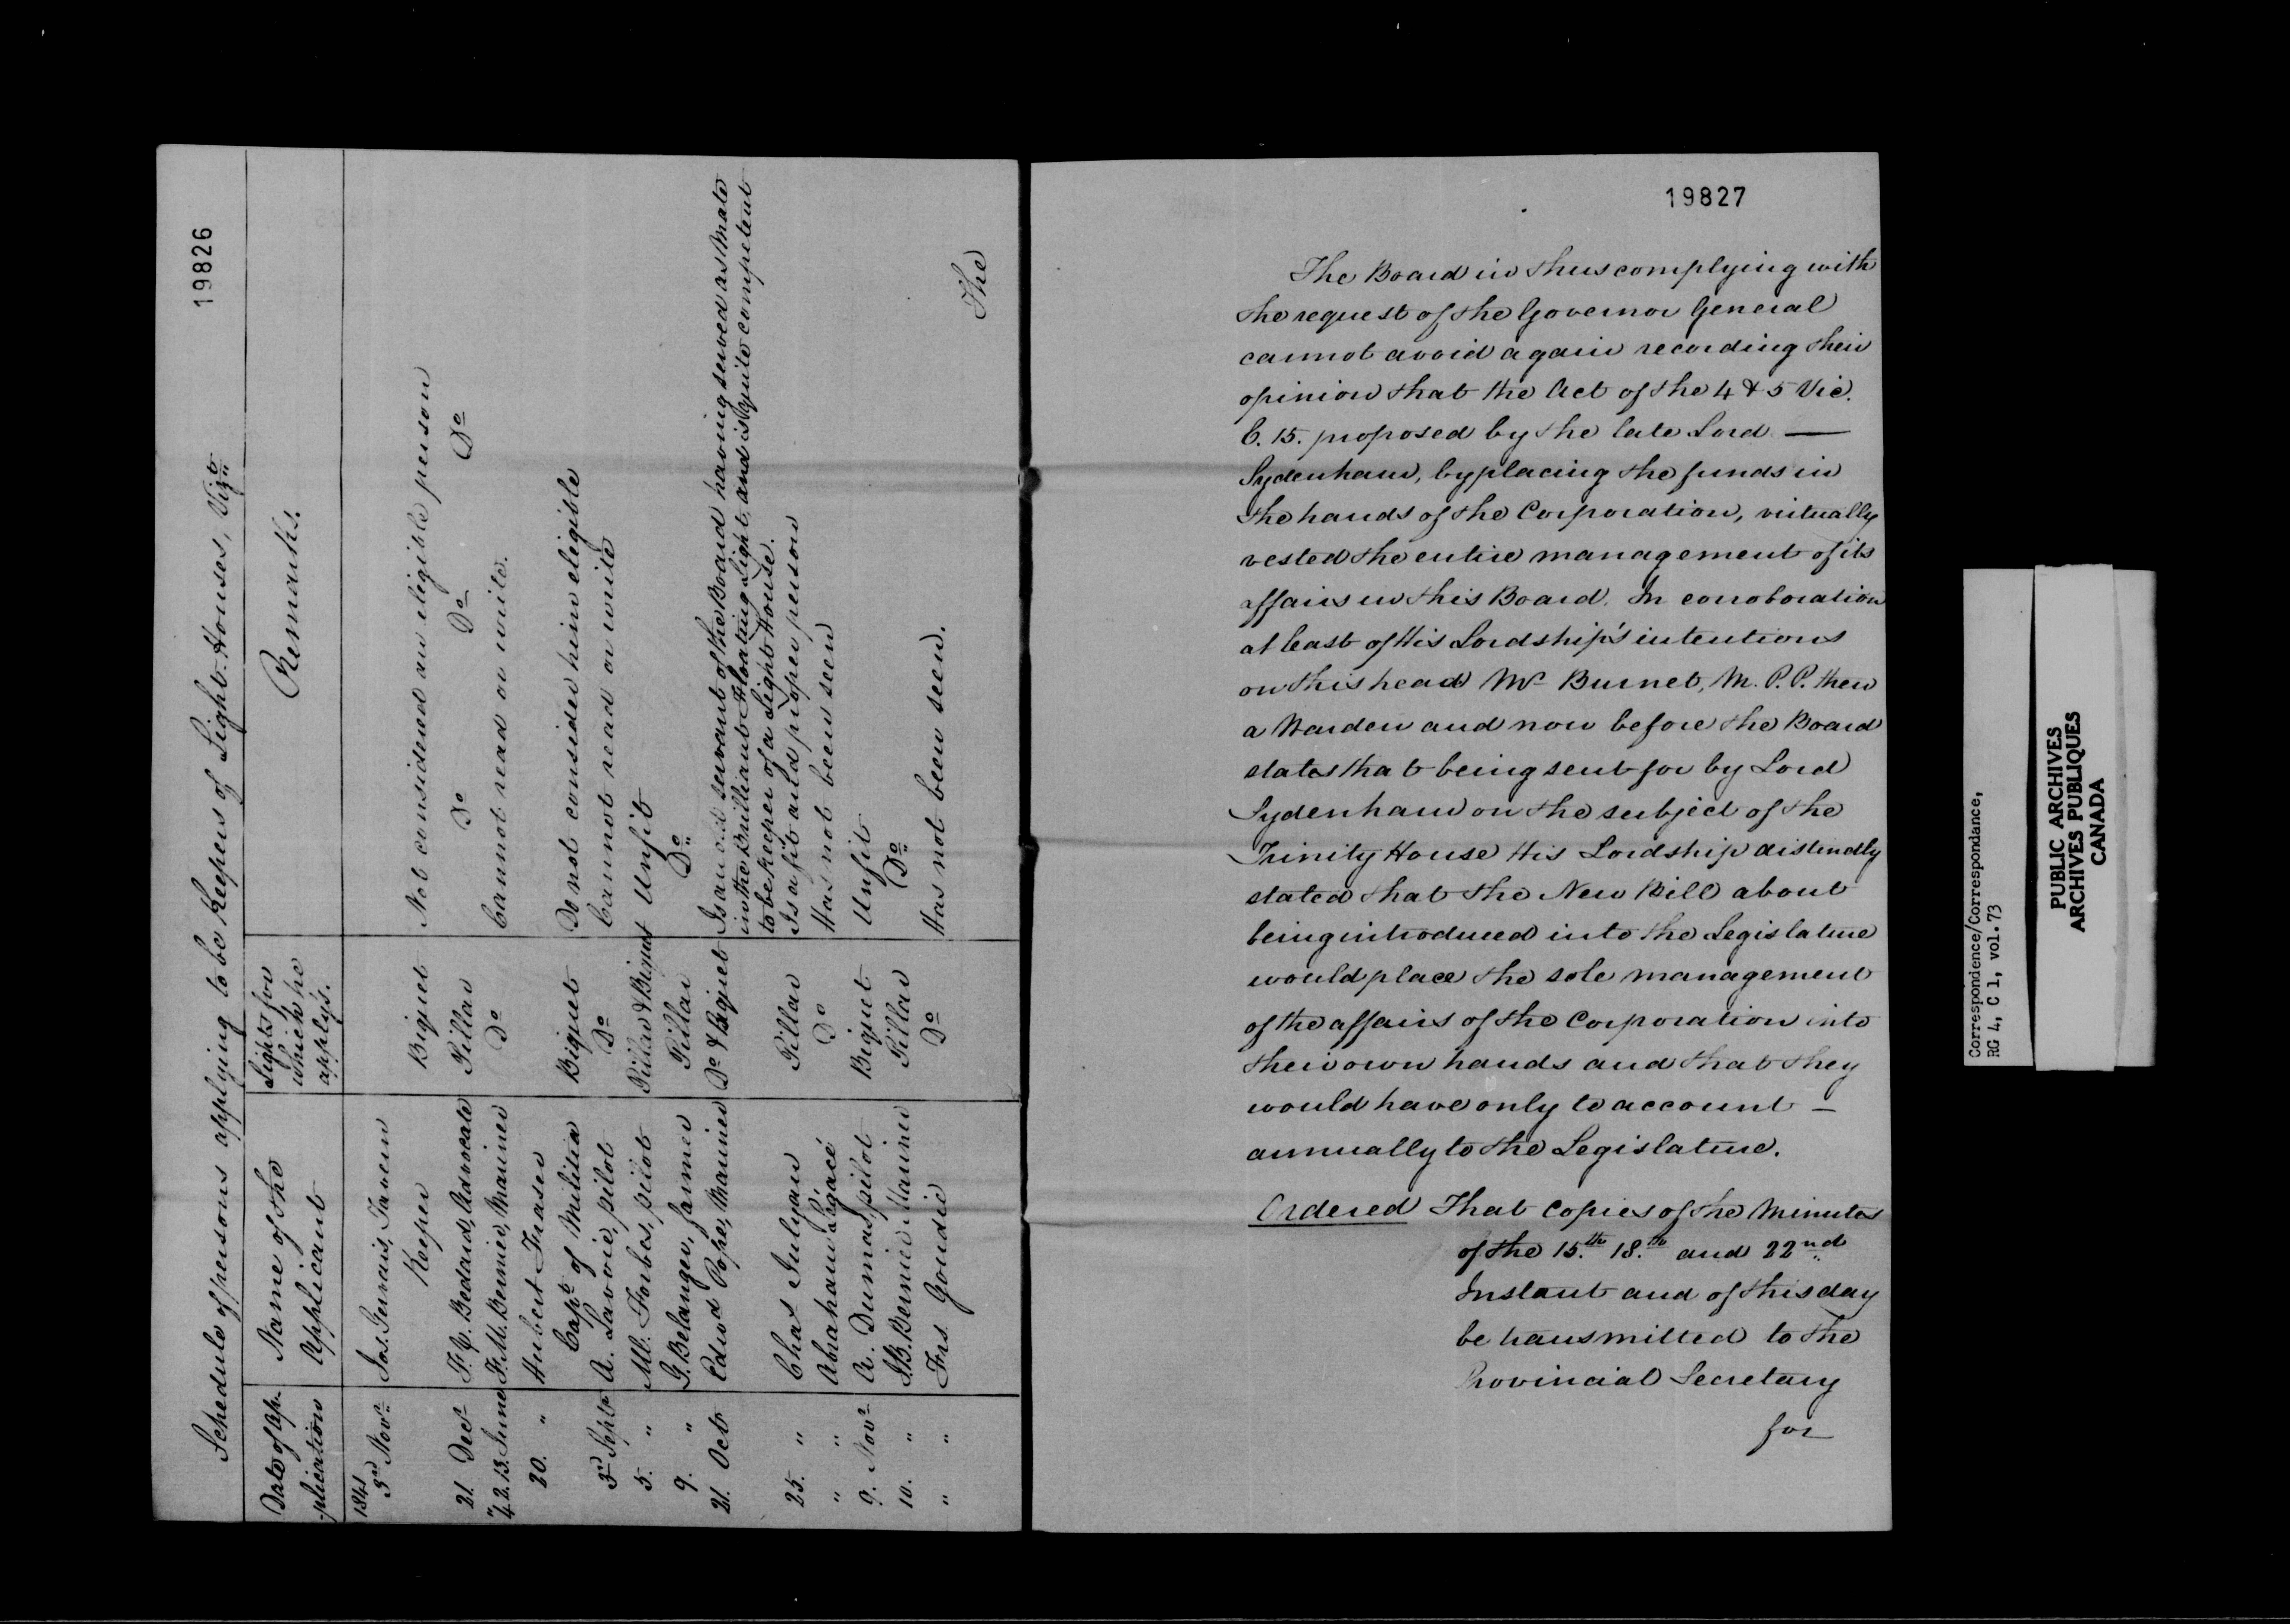 19826
Schedule of persons applying to be Keepers of Light-Houses, Vizt
Date of ap-
plication
Name of the
Applicant
Lights for
which he
apply's.
Remarks.
1841
3rd Novr Jos. Gervais, Tavern
Keeper Biquet Not considered an eligible person
21. Decr F. X. Bedard, Advocate Pillar Do Do Do
" 42. 13. June F. M. Bernier, Mariner Do Cannot read or write.
20. " Hubert Fraser
Capt of Militia Biquet Do not consider him eligible
3rd Septr A. Lavoie, pilot Do Cannot read or write
5. " Ml. Forbes, pilot Pillar & Biquet Unfit
9. " G. Belanger, farmer Pillar Do
21. Octr Edwd Pope, Mariner Do & Biquet Is an old servant of the Board having served as Mate
in the Brilliant Floating Light, and is quite competent
to be keeper of a Light House.
25. " Chas Julyan Pillar Is a fit and proper person
" " Abraham Lagacé Do Has not been seen
9. Novr A. Dumas, pilot Biquet Unfit
10. " J. B. Bernier Mariner Pillar Do
" " Frs Goudie Do Has not been seen.
The
19827
The Board in thus complying with
the request of the Governor General
cannot avoid again recording their
opinion that the Act of the 4 & 5 Vic.
C. 15. proposed by the late Lord —
Sydenham, by placing the funds in
the hands of the Corporation, virtually
vested the entire management of its
affairs in this Board. In corroboration
at least of His Lordship's intentions
on this head Mr Burnet, M. P. P. then
a Warden and now before the Board
states that being sent for by Lord
Sydenham on the subject of the
Trinity House His Lordship distinctly
stated that the New Bill about
being introduced into the Legislature
would place the sole management
of the affairs of the Corporation into
their own hands and that they
would have only to account —
annually to the Legislature.
Ordered That Copies of the Minutes
of the 15.th 18.th and 22nd
Instant and of this day
be transmitted to the
Provincial Secretary
for
Correspondence/Correspondance,
RG 4, C 1, vol. 73
PUBLIC ARCHIVES
ARCHIVES PUBLIQUES
CANADA